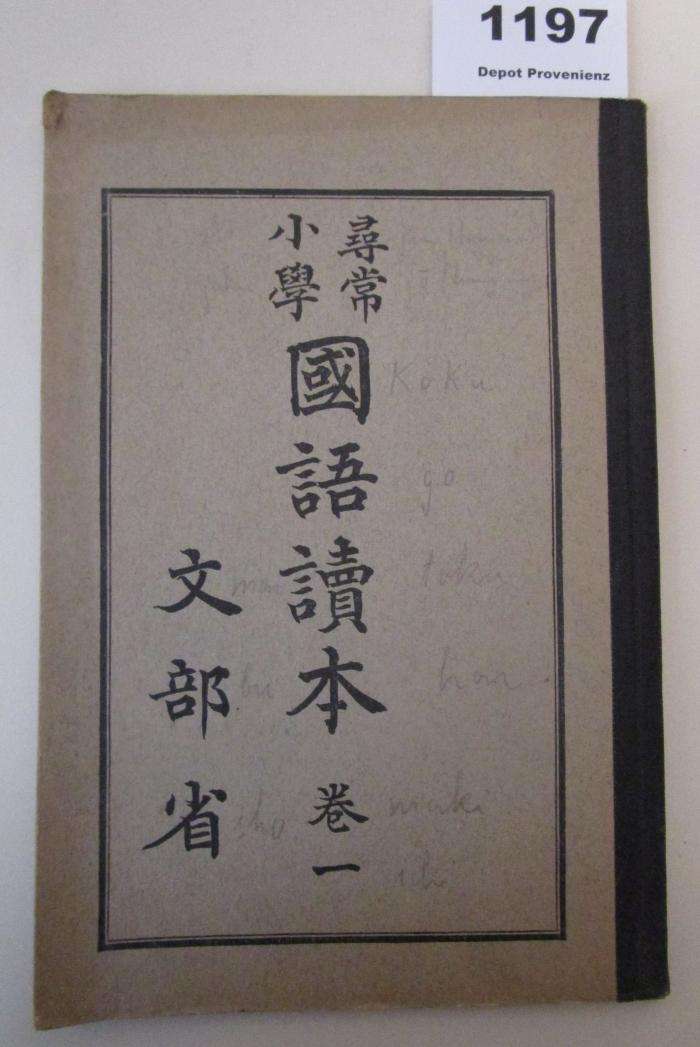 1197
Depot Provenienz
尋常
小學
國語讀本 卷一
文部省
Koku
go
toku
hon
maki
ichi
bu
sho